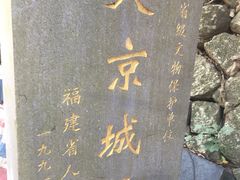 省级文物保护单位
大京城
福建省人
一九九